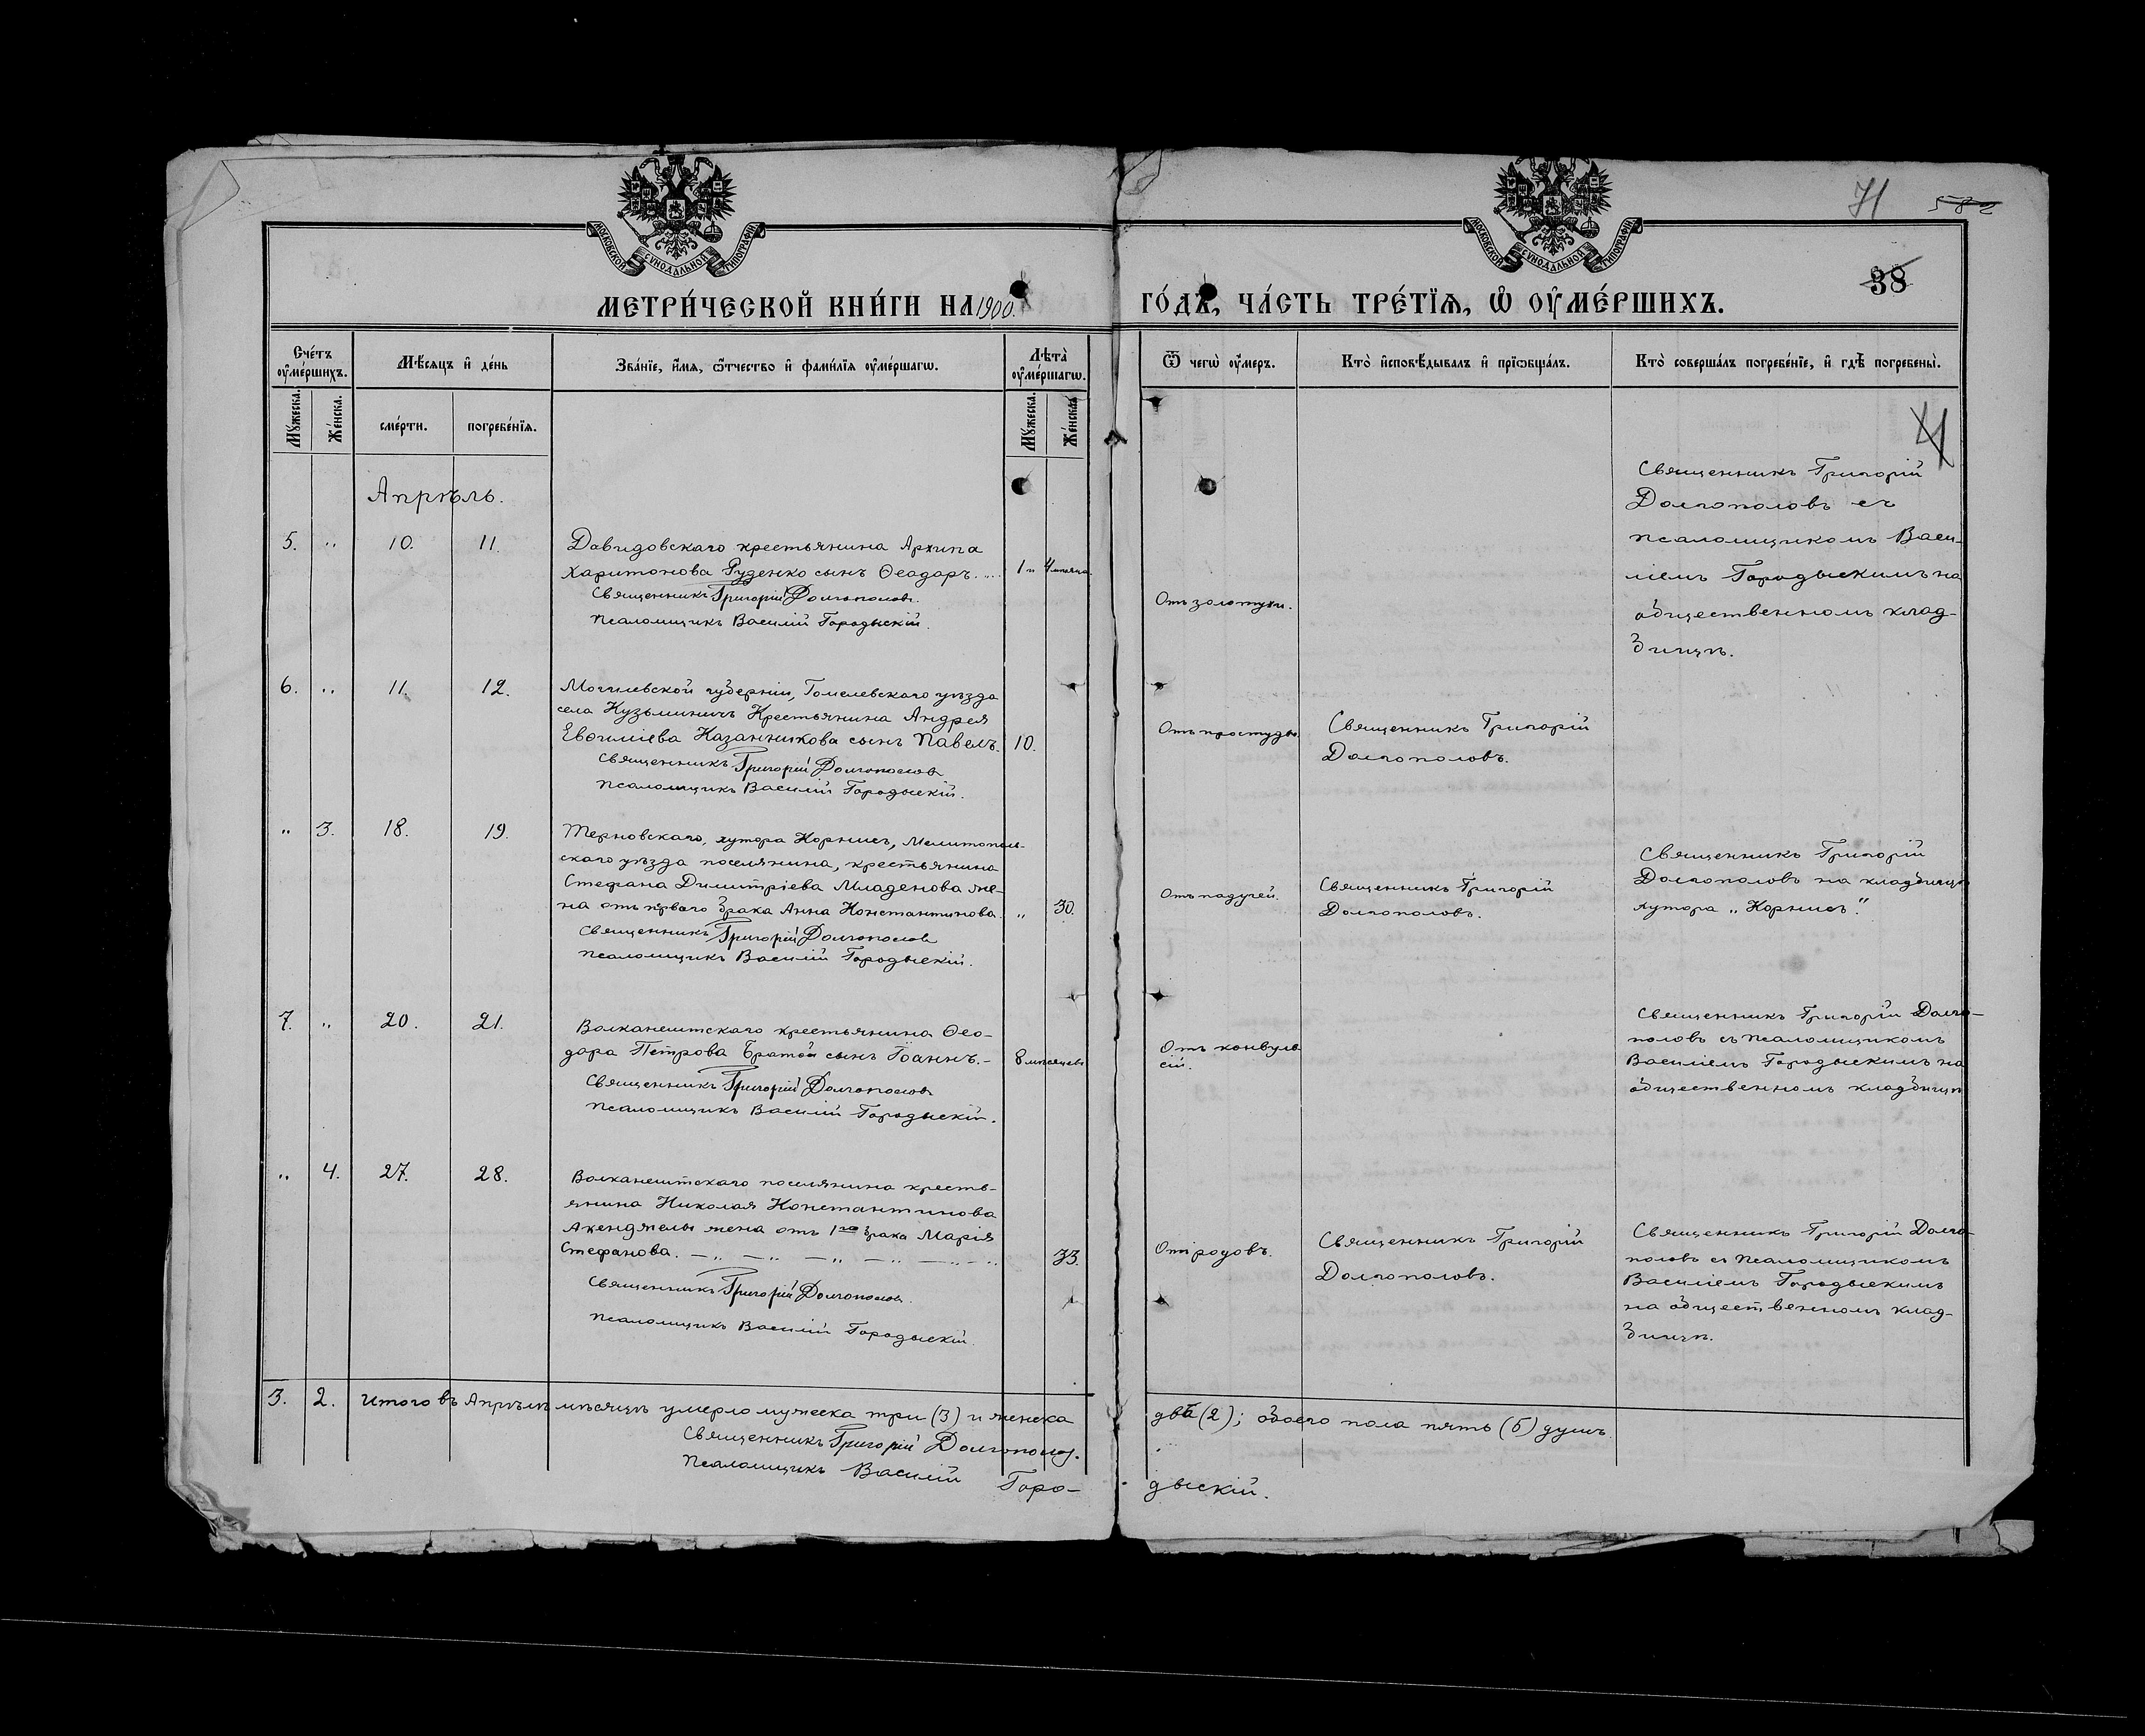 МОСКОВСКОЙ СѴНОДАЛЬНОЙ ТИПОГРАФІИ
МОСКОВСКОЙ СѴНОДАЛЬНОЙ ТИПОГРАФІИ
71
38
МЕТРИ́ЧЕСКОЙ КНИ́ГИ НА 1900.
ГО́ДЪ, ЧА́СТЬ ТРЕ́ТЇѦ, Ѡ҆ ОУ҆МЕ́РШИХЪ.
Сче́тъ оу҆ме́ршихъ.
Мѣ́сѧцъ и҆ де́нь
Зва́нїе, и҆́мѧ, ѻ҆́тчество и҆ фами́лїѧ оу҆ме́ршагѡ.
Лѣ́та оу҆ме́ршагѡ.
Мꙋ́жеска.
Же́нска.
сме́рти.
погребе́нїѧ.
Мꙋ́жеска.
Же́нска.
Ѿ чегѡ̀ оу҆́меръ.
Кто̀ и҆сповѣ́дывалъ и҆ прїѡбща́лъ.
Кто̀ соверша́лъ погребе́нїе, и҆ гдѣ̀ погребены̀.
Апрѣль.
5. " 10. 11.
Давидовскаго крестьянина Архипа
Харитонова Руденко сынъ Ѳеодоръ.
1 и 4 мѣсяца
Священникъ Григорій Долгополовъ.
Псаломщикъ Василій Городыскій.
Отъ золотухи.
Священникъ Григорій
Долгополовъ съ
псаломщикомъ Васи-
ліемъ Городыскимъ на
общественномъ клад-
бищѣ.
6. " 11. 12.
Могилевской губерніи, Гомелевскаго уѣзда
села Кузьминичъ Крестьянина Андрея
Евѳиміева Казанникова сынъ Павелъ.
10.
Священникъ Григорій Долгополовъ
Псаломщикъ Василій Городыскій.
Отъ простуды.
Священникъ Григорій
Долгополовъ.
" 3. 18. 19.
Терновскаго, хутора Корнисъ, Мелитополь-
скаго уѣзда поселянина, крестьянина
Стефана Димитріева Младенова же-
на отъ перваго брака Анна Константинова.
" 30.
Священникъ Григорій Долгополовъ
Псаломщикъ Василій Городыскій.
Отъ падучей.
Священникъ Григорій
Долгополовъ.
Священникъ Григорій
Долгополовъ на кладбищѣ
хутора „Корнисъ".
7. " 20. 21.
Волканештскаго крестьянина Ѳео-
дора Петрова Братой сынъ Іоаннъ.-
8 мѣсяцевъ
Священникъ Григорій Долгополовъ
Псаломщикъ Василій Городыскій.
Отъ конвуль
сій.
Священникъ Григорій Долго-
половъ съ псаломщикомъ
Василіемъ Городыскимъ на
общественномъ кладбищѣ
" 4. 27. 28.
Волканештскаго поселянина кресть-
янина Николая Константинова
Акенджелы жена отъ 1го брака Марія
Стефанова.
33.
Священникъ Григорій Долгополовъ.
Псаломщикъ Василій Городыскій.
Отъ родовъ.
Священникъ Григорій
Долгополовъ.
Священникъ Григорій Долго-
половъ съ псаломщикомъ
Василіемъ Городыскимъ
на общественномъ клад-
бищѣ.
3. 2. Итого въ Апрѣлѣ мѣсяцѣ умерло мужеска три (3) и женска
двѣ (2); обоего пола пять (5) душъ.
Священникъ Григорій Долгополов.
Псаломщикъ Василій Горо-
дыскій.